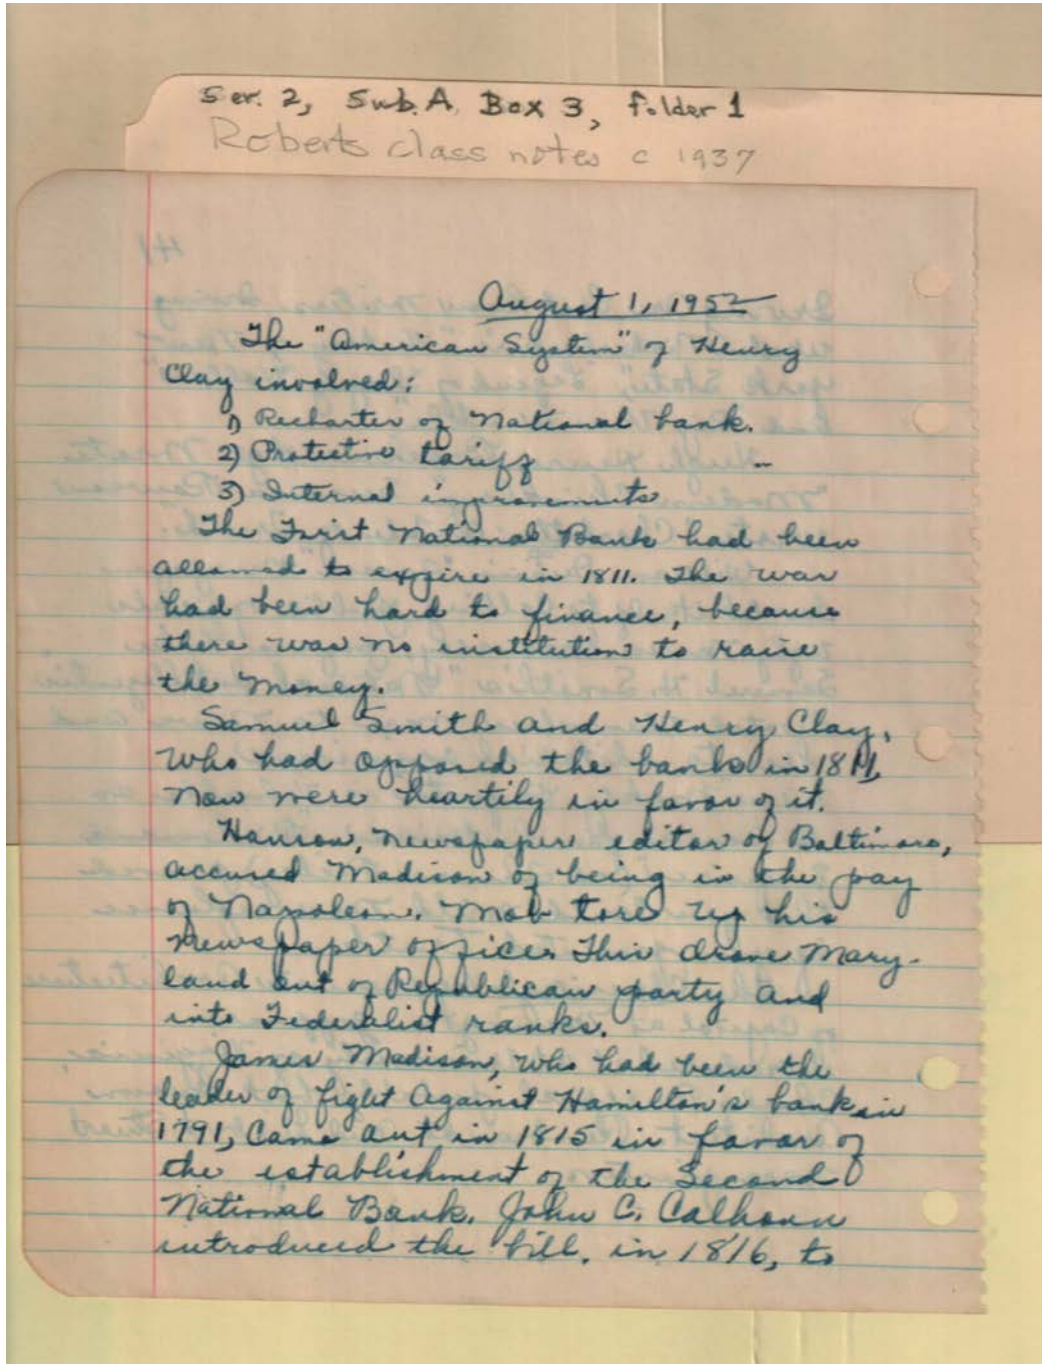 Ser. 2, Sub. A, Box 3, folder 1
Roberts class notes c 1937
August 1, 1952
The "American System" of Henry
Clay involved:
1) Recharter of National bank.
2) Protective tariff
3) Internal improvements
The First National Bank had been
allowed to expire in 1811. The war
had been hard to finance, because
there was no institution to raise
the money.
Samuel Smith and Henry Clay,
who had opposed the bank in 1811,
now were heartily in favor of it.
Hanson, newspaper editor of Baltimore,
accused Madison of being in the pay
of Napoleon. Mob tore up his
newspaper office. This drove Mary-
land out of Republican party and
into Federalist ranks.
James Madison, who had been the
leader of fight against Hamilton's bank in
1791, came out in 1815 in favor of
the establishment of the Second
National Bank. John C. Calhoun
introduced the bill, in 1816, to